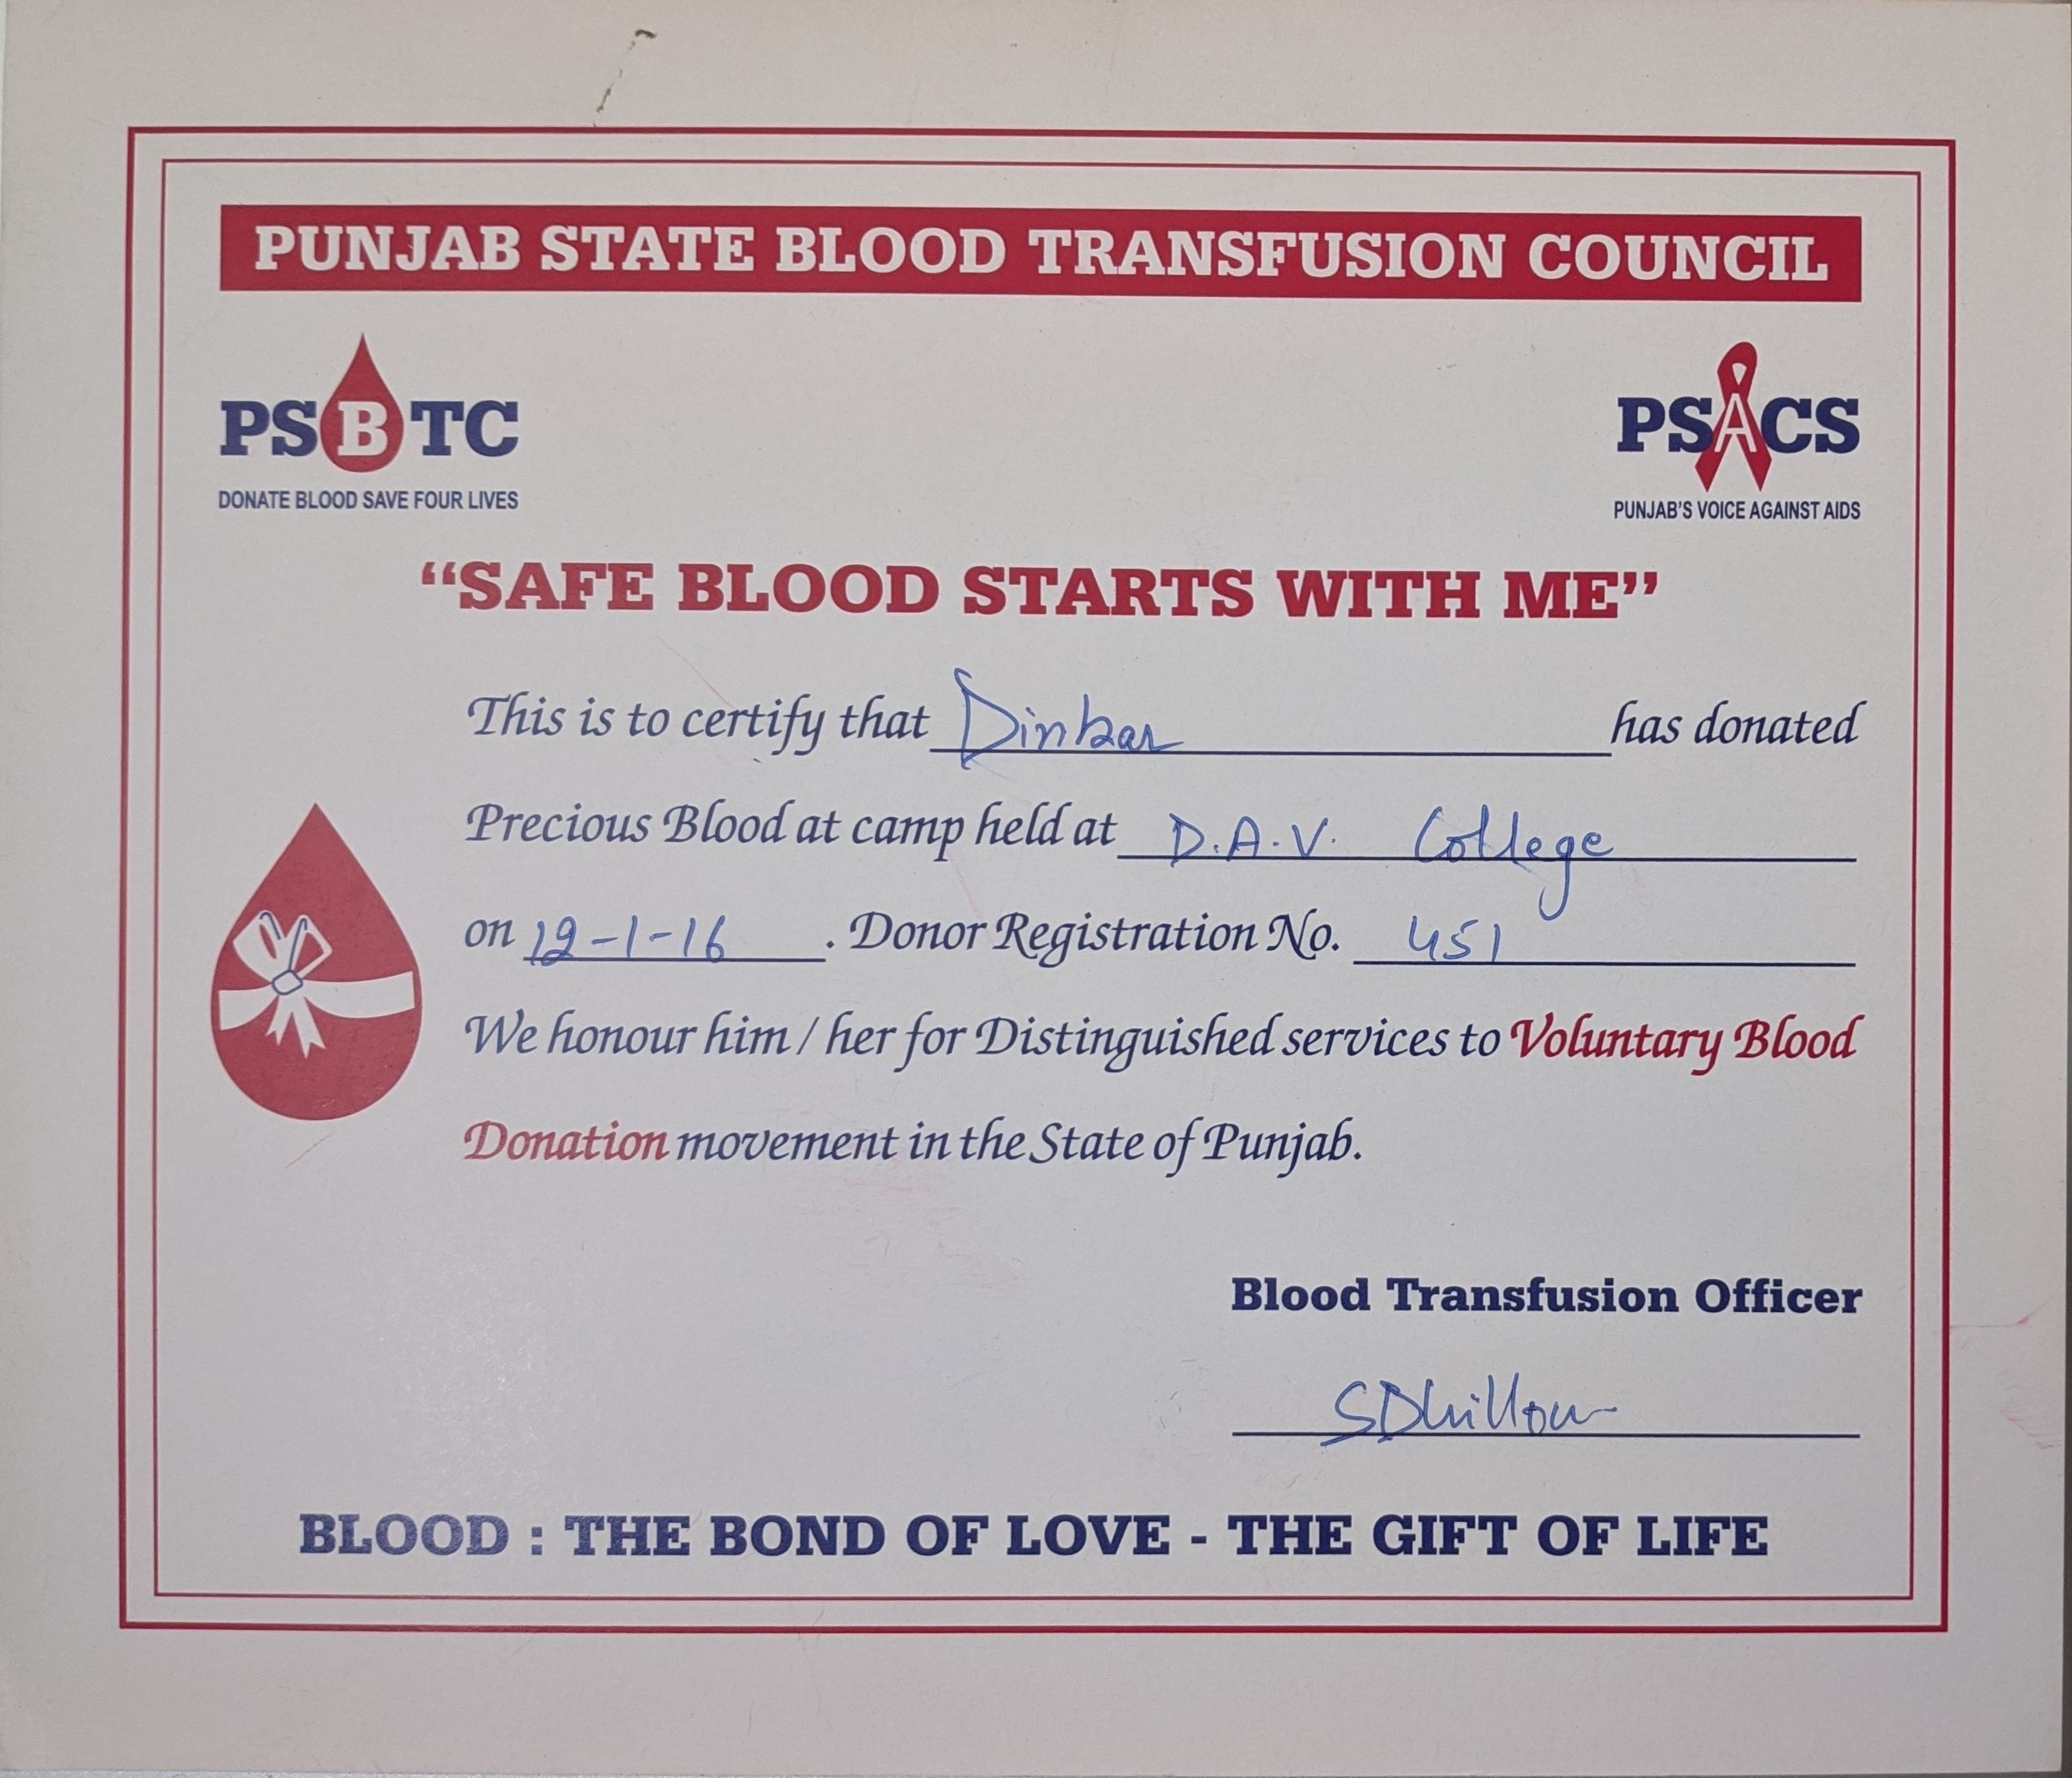 PUNJAB STATE BLOOD TRANSFUSION COUNCIL
PSBTC
DONATE BLOOD SAVE FOUR LIVES
PSACS
PUNJAB'S VOICE AGAINST AIDS
“SAFE BLOOD STARTS WITH ME”
This is to certify that Dinkar has donated
Precious Blood at camp held at D.A.V. College
on 12-1-16 . Donor Registration No. 451
We honour him / her for Distinguished services to Voluntary Blood
Donation movement in the State of Punjab.
Blood Transfusion Officer
SDhillon
BLOOD : THE BOND OF LOVE - THE GIFT OF LIFE